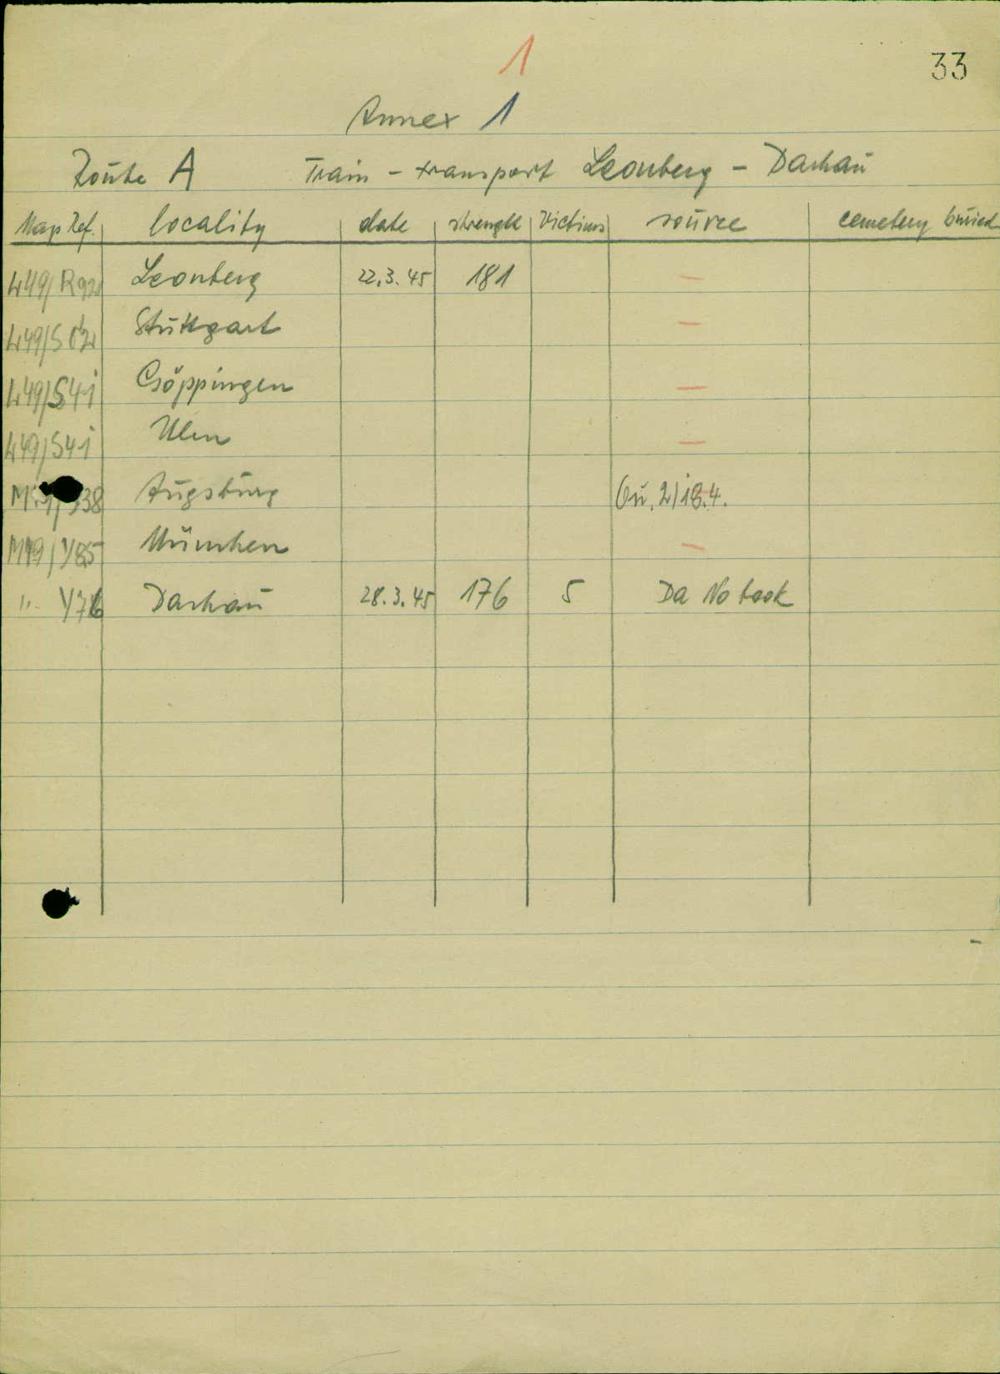 1
33
Annex 1
Route A Train - transport Leonberg - Dachau
Map Ref. locality date strenght Victims source cemetery buried
L49/R92 Leonberg 22.3.45 181 —
L49/S02 Stuttgart —
L49/S41 Göppingen —
L49/S41 Ulm —
Augsburg Qu. 2/18.4.
M49/Y85 München —
" Y76 Dachau 28.3.45 176 5 Da No book